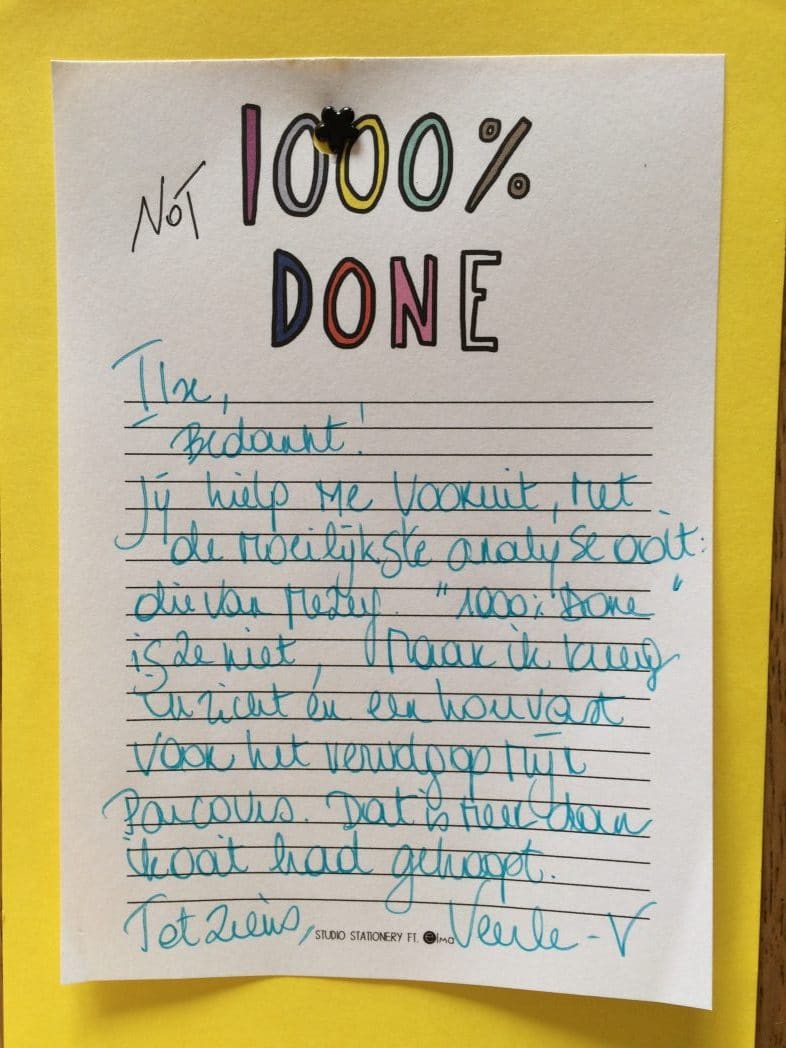 NOT 1000%
DONE
Ilse,
Bedankt!
Jij hielp me vooruit, met
de moeilijkste analyse ooit:
die van mezelf. "1000% Done"
is ze niet, Maar ik kreeg
inzicht én een houvast
voor het vervolg op mijn
Parcours. Dat is meer dan
ik ooit had gehoopt.
Tot ziens, Veerle - V
STUDIO STATIONERY FT. Elma